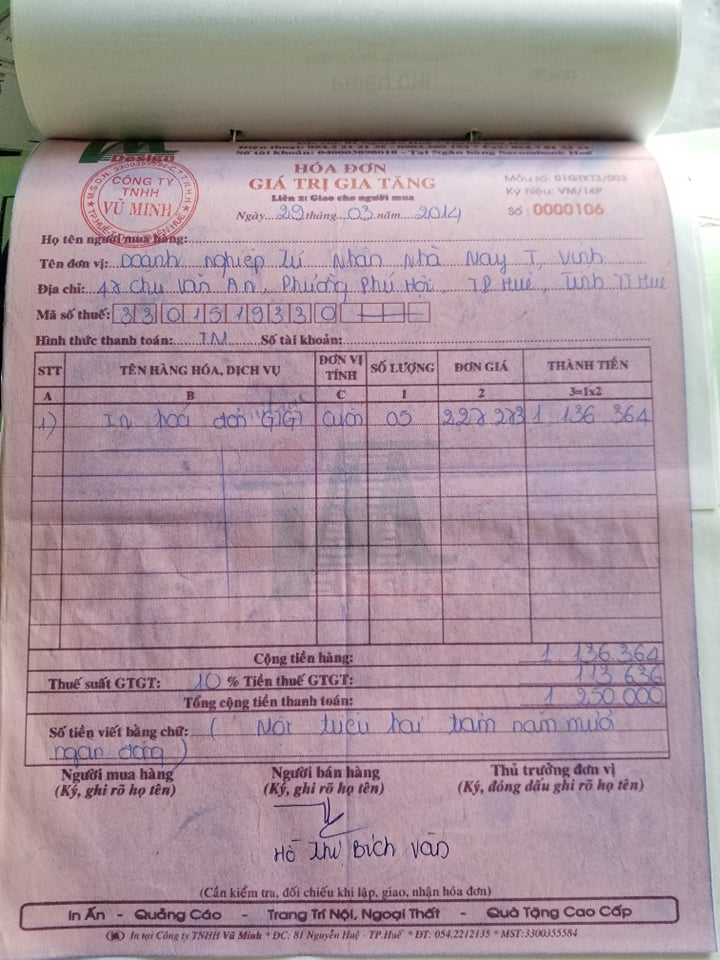 PHIẾU CHI
Design
Số tài khoản: 040003898018 - Tại Ngân hàng Sacombank Huế
CÔNG TY
TNHH
VŨ MINH
HÓA ĐƠN
GIÁ TRỊ GIA TĂNG
Liên 2: Giao cho người mua
Ngày....29....tháng....03....năm....2014
Mẫu số: 01GTKT3/003
Ký hiệu: VM/14P
Số : 0000106
Họ tên người mua hàng:
Tên đơn vị: Doanh nghiệp Tư Nhân Nhà May T. Vinh
Địa chỉ: 48 Chu Văn An, Phường Phú Hội, TP Huế, Tỉnh TT Huế
Mã số thuế: 3301519330
Hình thức thanh toán: TM Số tài khoản:
STT TÊN HÀNG HÓA, DỊCH VỤ ĐƠN VỊ TÍNH SỐ LƯỢNG ĐƠN GIÁ THÀNH TIỀN
A B C 1 2 3=1x2
1) In hoá đơn GTGT Cuốn 05 227 273 1 136 364
Cộng tiền hàng: 1.136.364
Thuế suất GTGT: 10 % Tiền thuế GTGT: 113 636
Tổng cộng tiền thanh toán: 1 250.000
Số tiền viết bằng chữ: ( Một triệu hai trăm năm mươi
ngàn đồng )
Người mua hàng Người bán hàng Thủ trưởng đơn vị
(Ký, ghi rõ họ tên) (Ký, ghi rõ họ tên) (Ký, đóng dấu ghi rõ họ tên)
Hồ Thị Bích Vân
(Cần kiểm tra, đối chiếu khi lập, giao, nhận hóa đơn)
In Ấn - Quảng Cáo - Trang Trí Nội, Ngoại Thất - Quà Tặng Cao Cấp
In tại Công ty TNHH Vũ Minh * ĐC: 81 Nguyễn Huệ - TP.Huế * ĐT: 054.2212135 * MST:3300355584